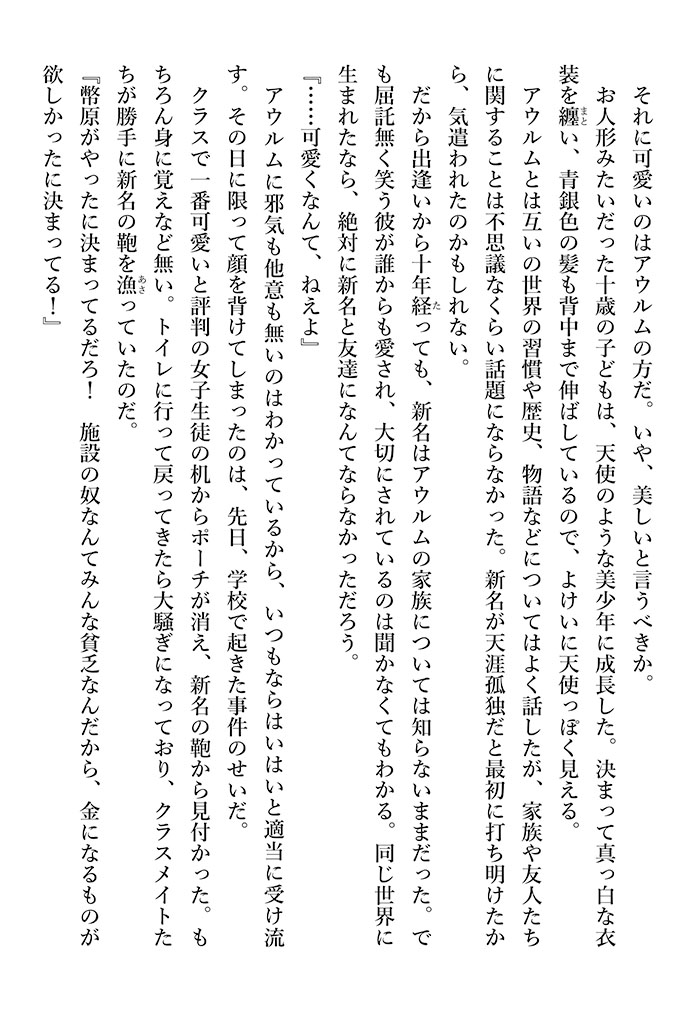 それに可愛いのはアウルムの方だ。いや、美しいと言うべきか。
お人形みたいだった十歳の子どもは、天使のような美少年に成長した。決まって真っ白な衣
装を纏い、青銀色の髪も背中まで伸ばしているので、よけいに天使っぽく見える。
アウルムとは互いの世界の習慣や歴史、物語などについてはよく話したが、家族や友人たち
に関することは不思議なくらい話題にならなかった。新名が天涯孤独だと最初に打ち明けたか
ら、気遣われたのかもしれない。
だから出逢いから十年経っても、新名はアウルムの家族については知らないままだった。で
も屈託無く笑う彼が誰からも愛され、大切にされているのは聞かなくてもわかる。同じ世界に
生まれたなら、絶対に新名と友達になんてならなかっただろう。
『……可愛くなんて、ねえよ』
アウルムに邪気も他意も無いのはわかっているから、いつもならはいはいと適当に受け流
す。その日に限って顔を背けてしまったのは、先日、学校で起きた事件のせいだ。
クラスで一番可愛いと評判の女子生徒の机からポーチが消え、新名の鞄から見付かった。も
ちろん身に覚えなど無い。トイレに行って戻ってきたら大騒ぎになっており、クラスメイトた
ちが勝手に新名の鞄を漁っていたのだ。
『幣原がやったに決まってるだろ！　施設の奴なんてみんな貧乏なんだから、金になるものが
欲しかったに決まってる！』